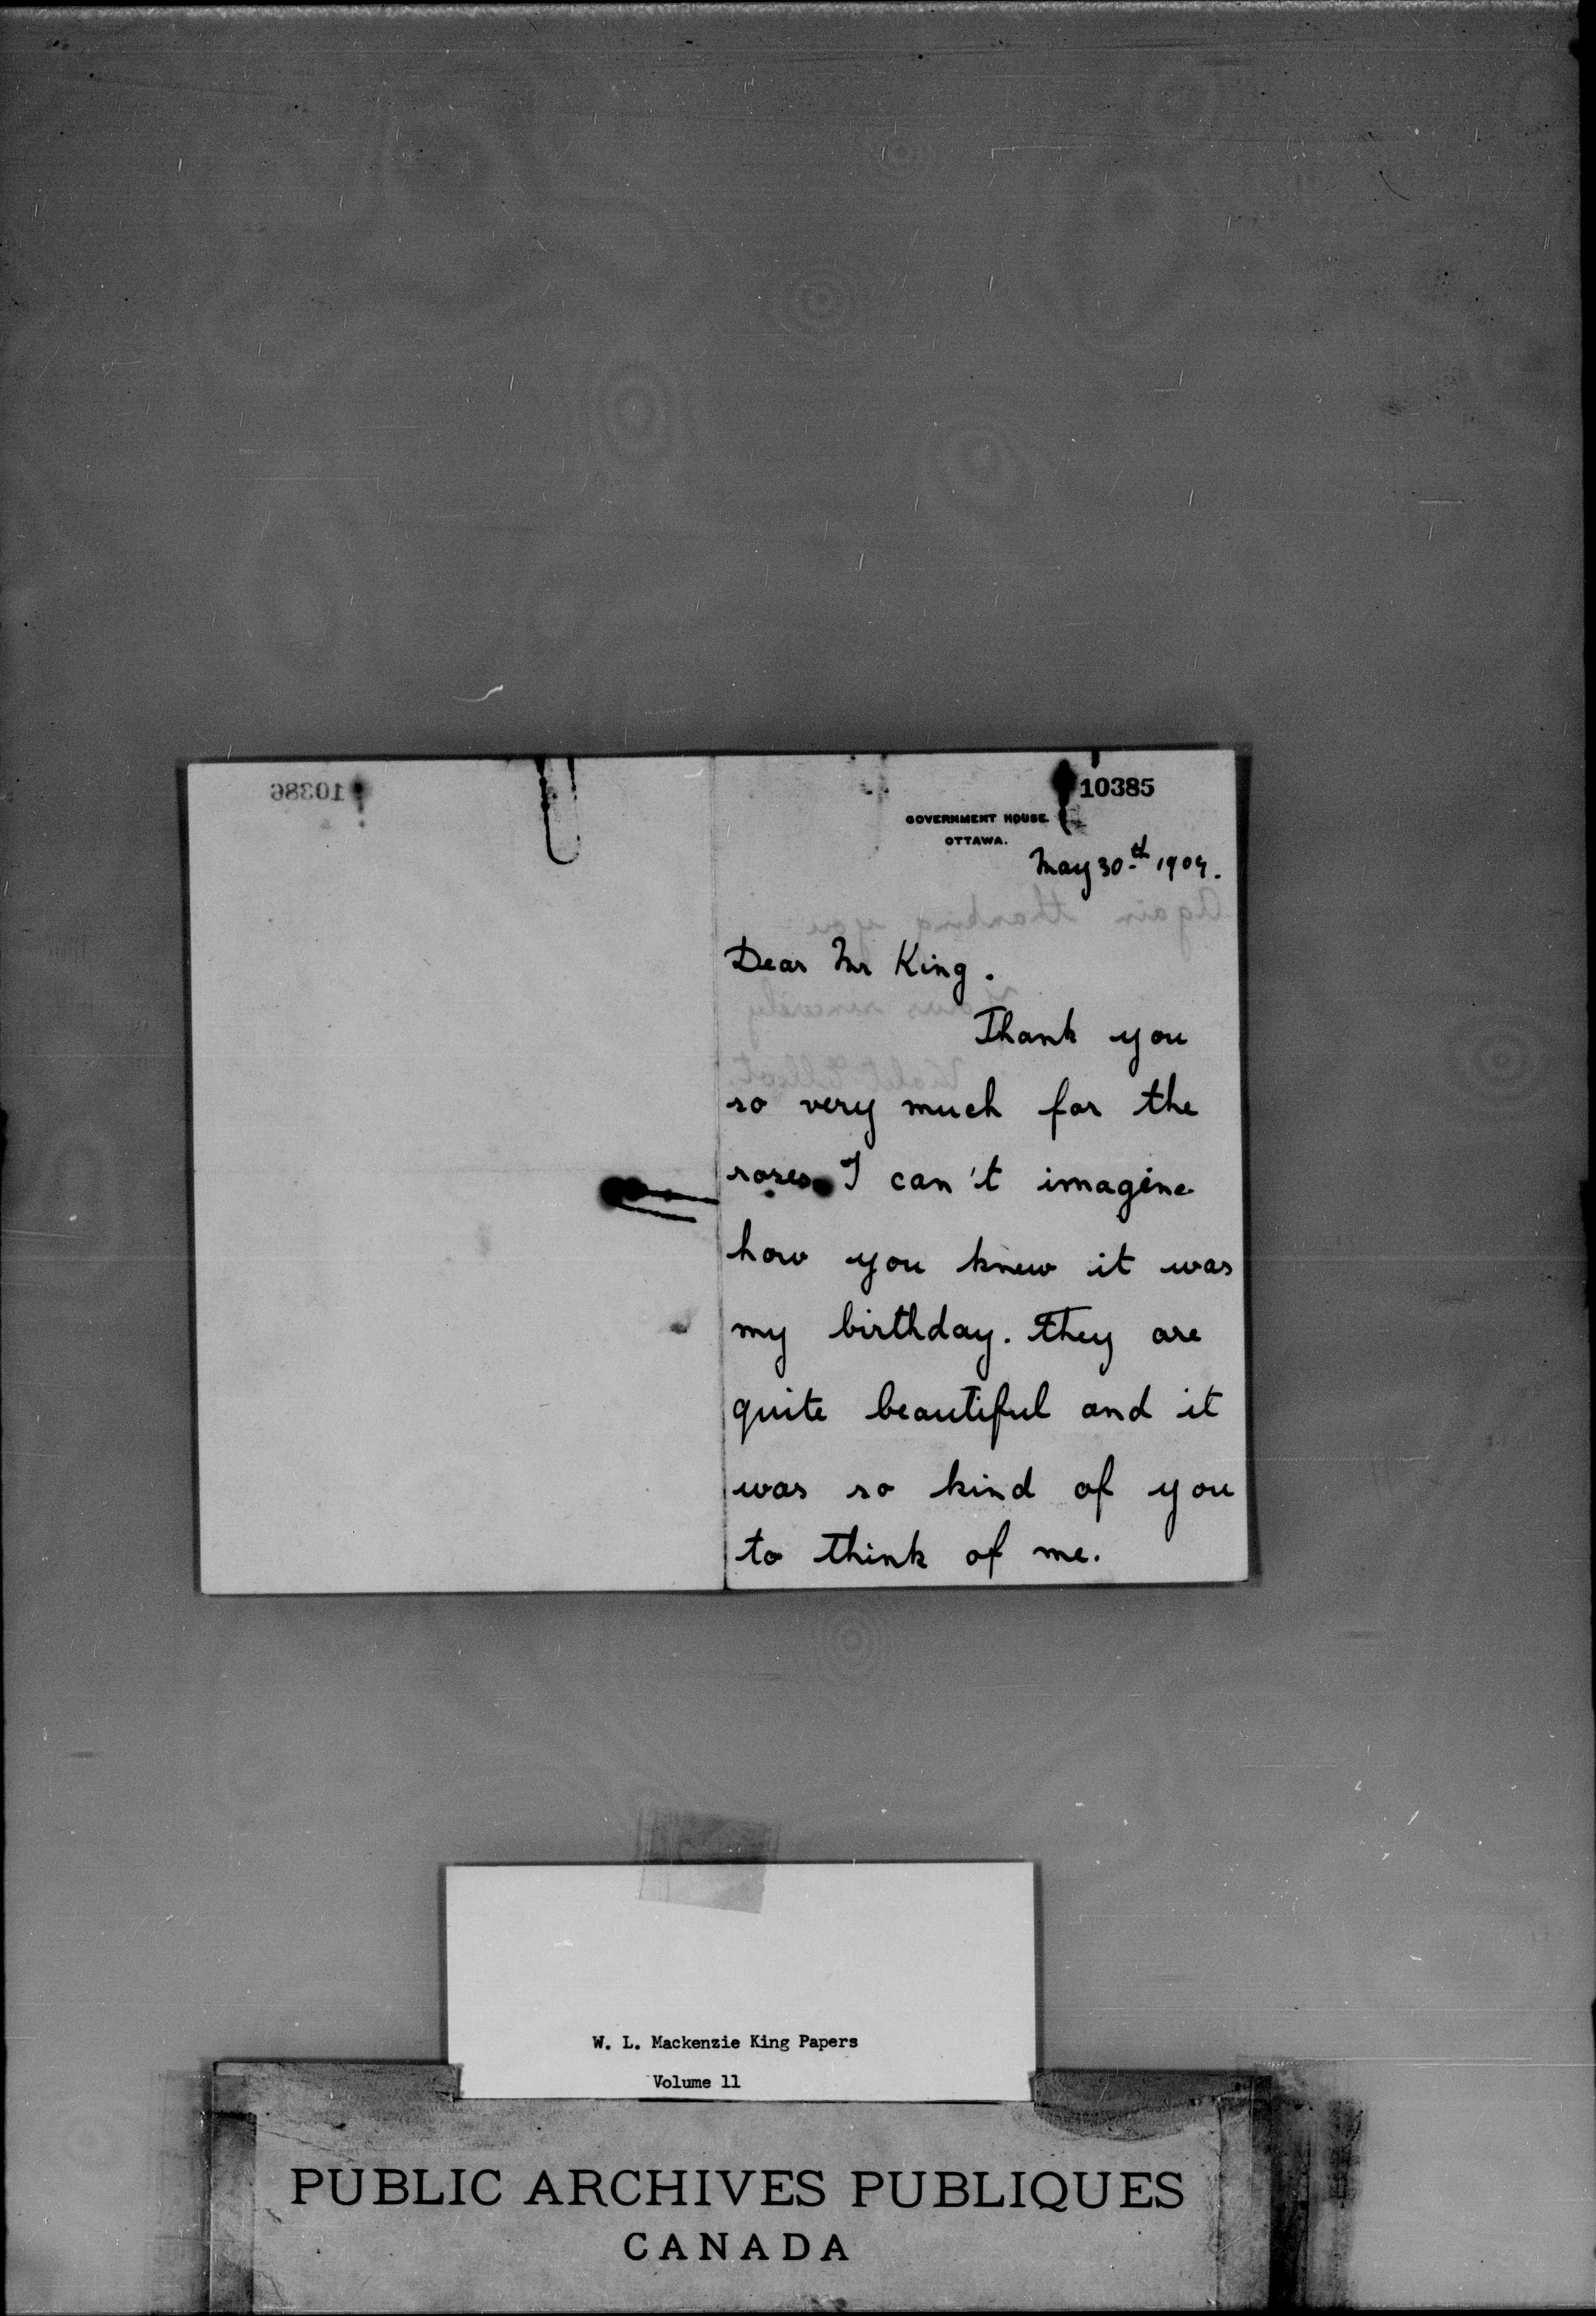 10386
10385
GOVERNMENT HOUSE.
OTTAWA.
May 30th 1909.
Dear Mr King.
Thank you
so very much for the
roses. I can't imagine
how you knew it was
my birthday. They are
quite beautiful and it
was so kind of you
to think of me.
Again thanking you
Yours sincerely
Violet Elliot.
W. L. Mackenzie King Papers
Volume 11
PUBLIC ARCHIVES PUBLIQUES
CANADA